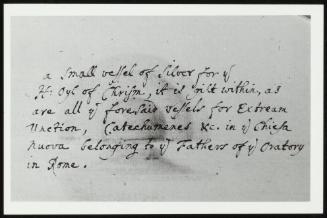 a Small vessel of Silver for yͤ
H: Oyl of Chrism, it is gilt within, as
are all yͤ foresaid vessels for Extream
Unction, Catechumenes &c. in yͤ Chiesa
nuova belonging to yͤ Fathers of yͤ Oratory
in Rome.